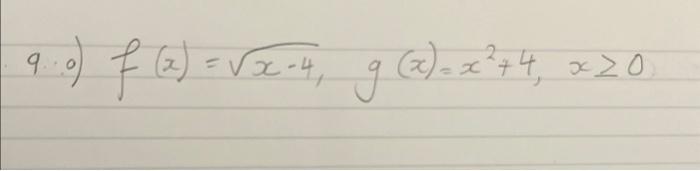 9. a) f(x) = √(x-4), g(x) = x²+4, x ≥ 0